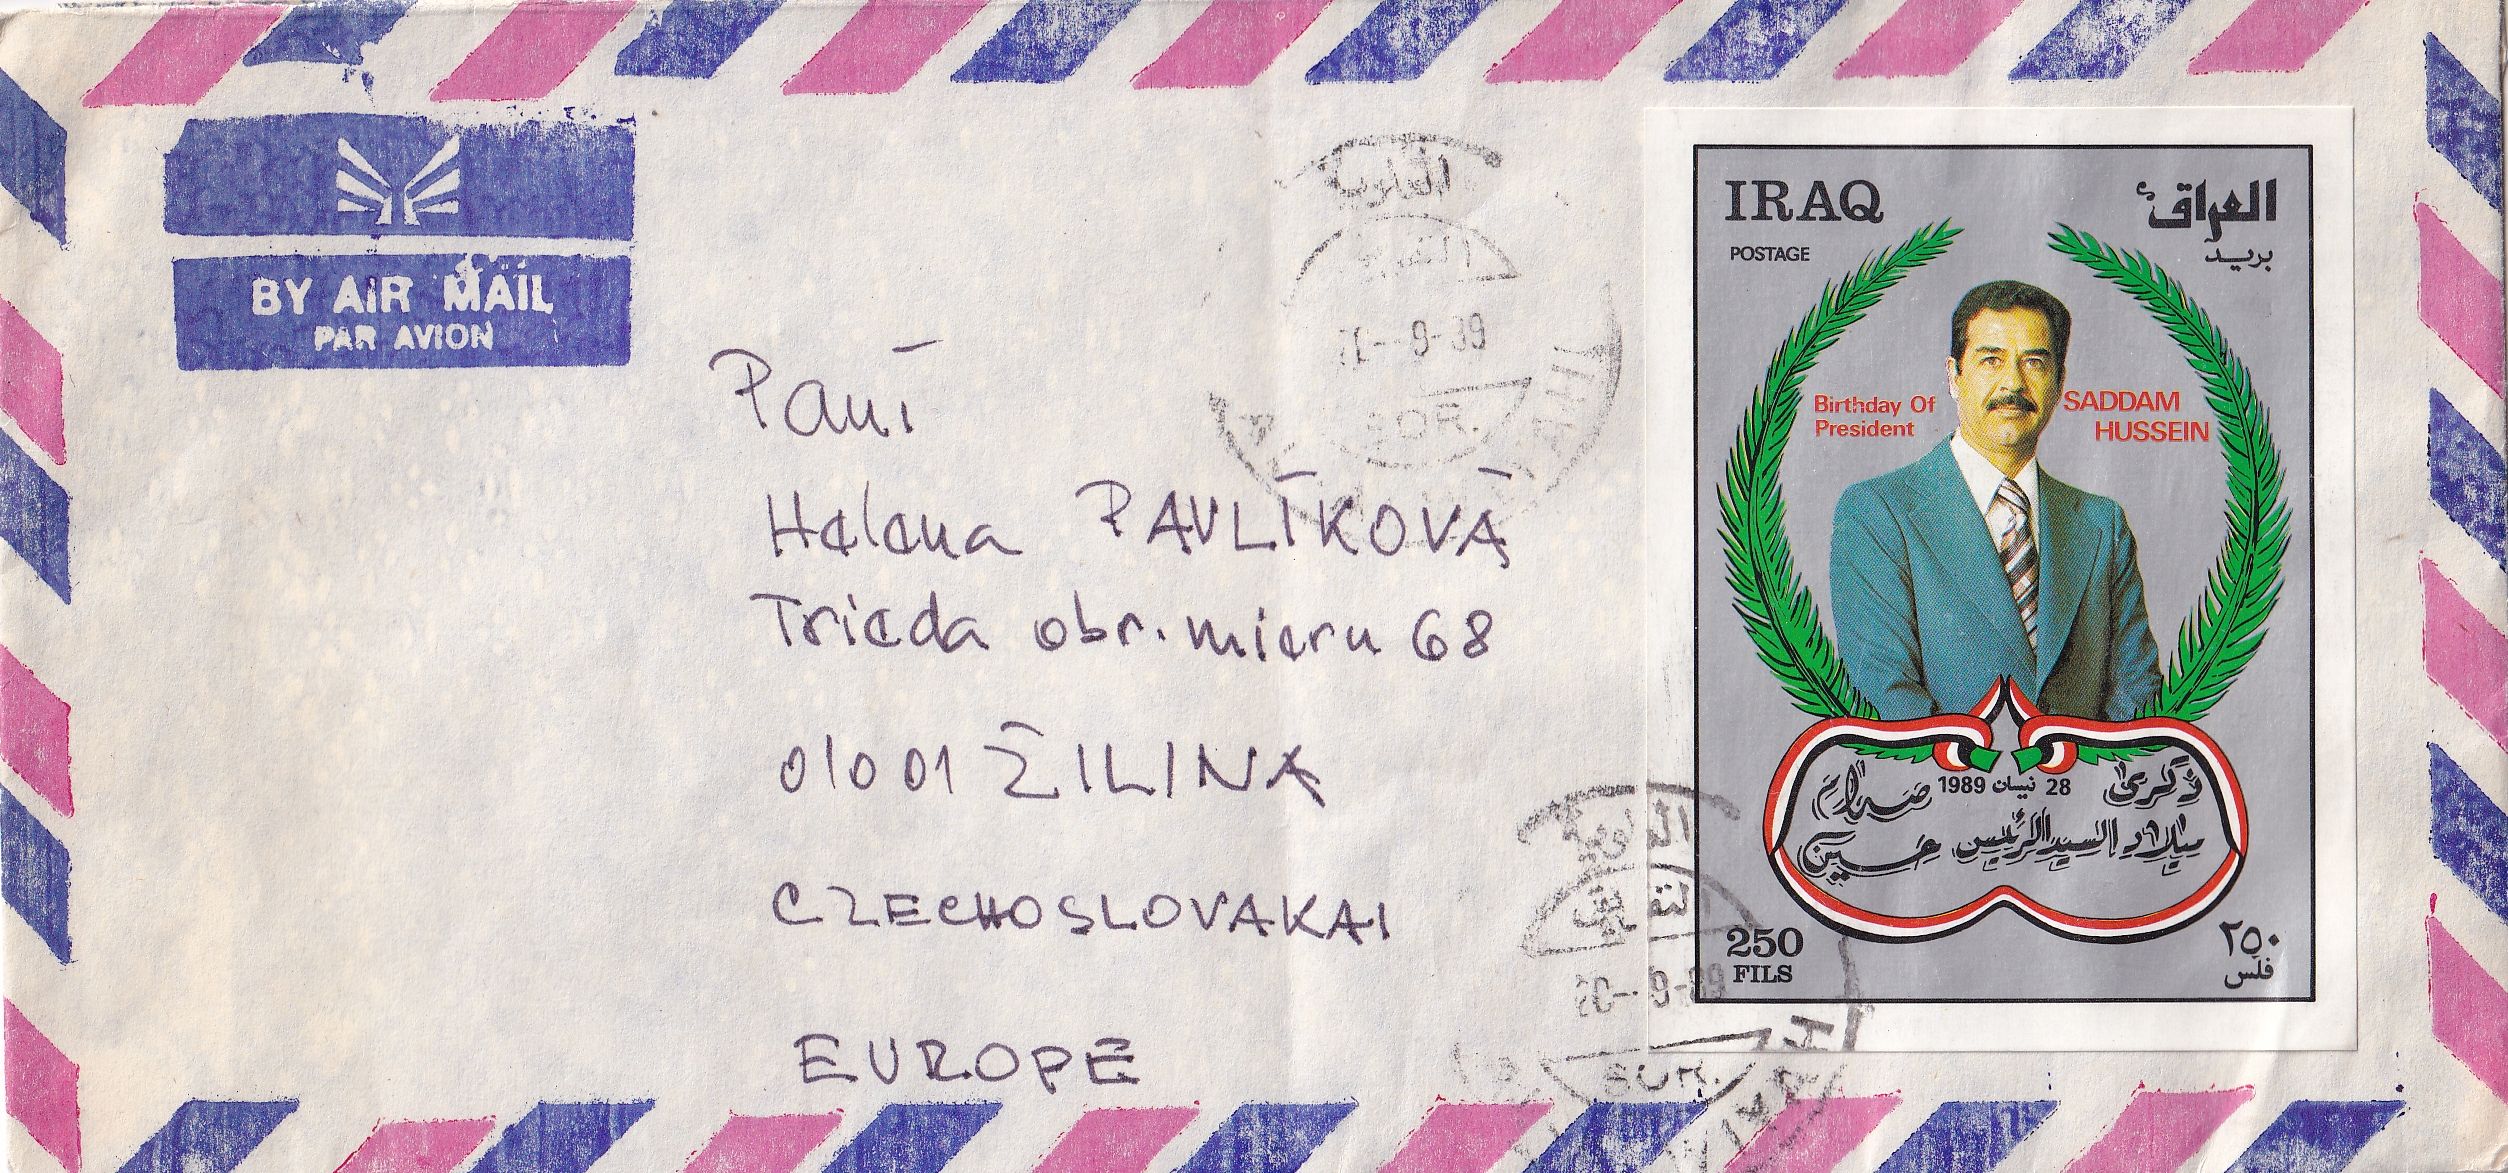 BY AIR MAIL
PAR AVION
Paní
Helena PAVLÍKOVÁ
Trieda obr. mieru 68
01001 ŽILINA
CZECHOSLOVAKAI
EUROPE
IRAQ
العراق
POSTAGE
بريد
Birthday Of
President
SADDAM
HUSSEIN
ذكرى 28 نيسان 1989 صدام
ميلاد السيد الرئيس حسين
250
FILS
٢٥٠
فلس
العلوية
9-89
SOR.
العلوية
9-89
SOR.